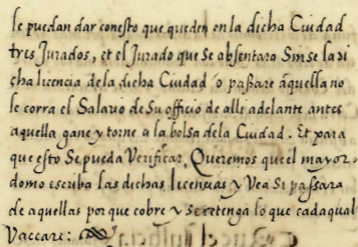 le puedan dar conesto que queden en la dicha Ciudad
tres Jurados, et el Jurado que Se absentara Sin se la di
cha licencia de la dicha Ciudad o passare aquella no
le corra el Salario de Su officio de alli adelante antes
aquella gane y torne a la bolsa dela Ciudad. Et para
que esto Se pueda Verificar, Queremos que el mayor
domo escriba las dichas licencias y Vea Si passara
de aquellas por que cobre y Se retenga lo que cada qual
Vaccare: